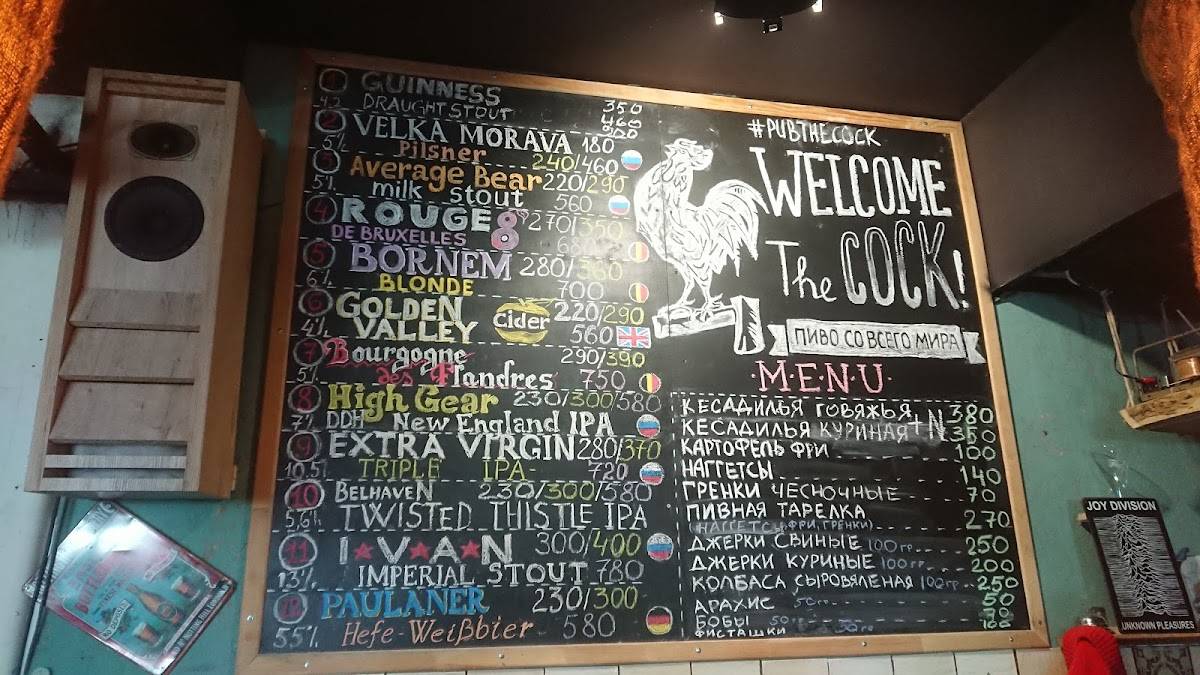 1 GUINNESS
4.2 DRAUGHT STOUT 350
460
2 VELKA MORAVA 180
5% Pilsner 240/460
3 Average Bear 220/290
5% milk stout 560
4 ROUGE 270/350
DE BRUXELLES 8 680
5 BORNEM 280/360
6% BLONDE 700
6 GOLDEN Cider 220/290
4% VALLEY 560
7 Bourgogne 290/390
5% des Flandres 750
8 High Gear 230/300/580
7% DDH New England IPA
9 EXTRA VIRGIN 280/370
10.5% TRIPLE IPA- 720
10 BELHAVEN 230/300/580
5,6% TWISTED THISTLE IPA
11 I★V★A★N 300/400
13% IMPERIAL STOUT 780
12 PAULANER 230/300
5.5% Hefe-Weißbier 580
#PUBTHECOCK
WELCOME
The COCK!
ПИВО СО ВСЕГО МИРА
·M·E·N·U·
КЕСАДИЛЬЯ ГОВЯЖЬЯ 380
КЕСАДИЛЬЯ КУРИНАЯ+N 350
КАРТОФЕЛЬ ФРИ 100
НАГГЕТСЫ 140
ГРЕНКИ ЧЕСНОЧНЫЕ 70
ПИВНАЯ ТАРЕЛКА
(НАГГЕТСЫ, ФРИ, ГРЕНКИ) 270
ДЖЕРКИ СВИНЫЕ 100гр 250
ДЖЕРКИ КУРИНЫЕ 100гр 200
КОЛБАСА СЫРОВЯЛЕНАЯ 100гр 250
АРАХИС 50гр 50
БОБЫ
ФИСТАШКИ
JOY DIVISION
UNKNOWN PLEASURES